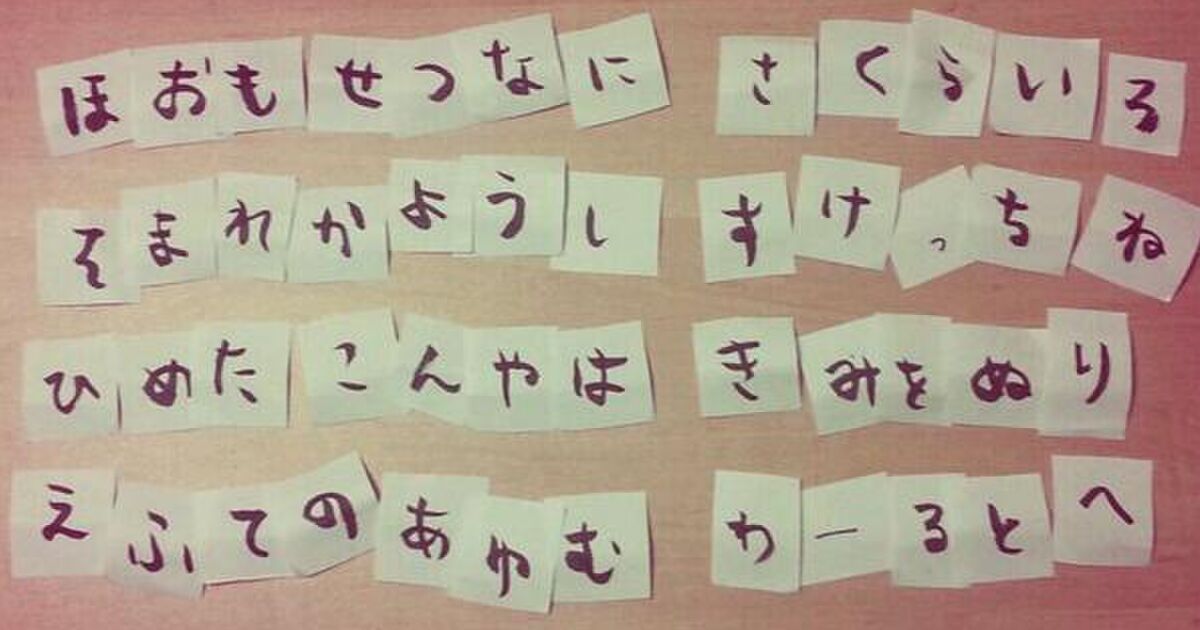 ほおもせつなに さくらいろ
そまれかようし すけっちね
ひめたこんやは きみをぬり
えふてのあゆむ わーるとへ